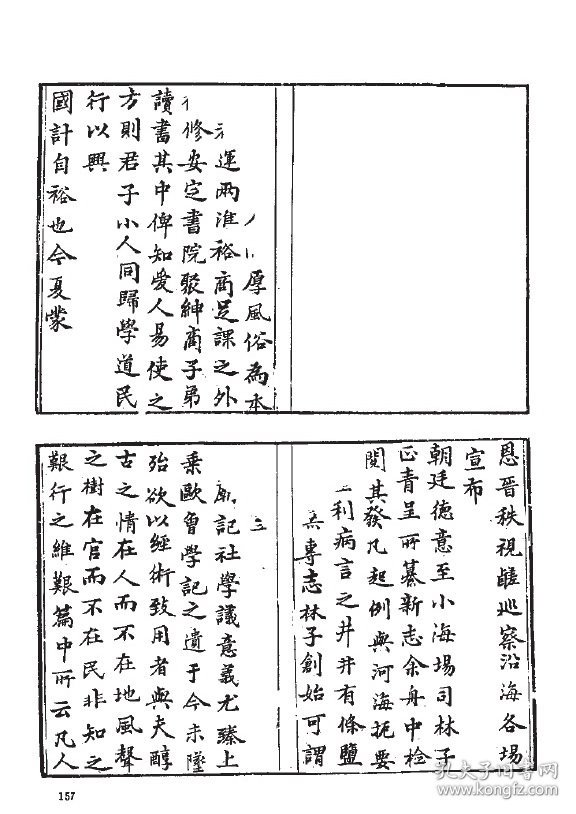 厚風俗為本
運兩淮裕商足課之外
修安定書院聚紳商子弟
讀書其中俾知愛人易使之
方則君子小人同歸學道民
行以興
國計自裕也今夏蒙
恩晉秩視鹺巡察沿海各場
宣布
朝廷德意至小海場司林子
正青呈所纂新志余舟中檢
閱其發凡起例與河海扼要
利病言之井井有條鹽
專志林子創始可謂
記社學議意義尤臻上
乘歐曾學記之遺于今未墜
殆欲以經術致用者與夫醇
古之情在人而不在地風聲
之樹在官而不在民非知之
艱行之維艱篇中所云凡人
157
孔夫子旧书网
www.kongfz.com